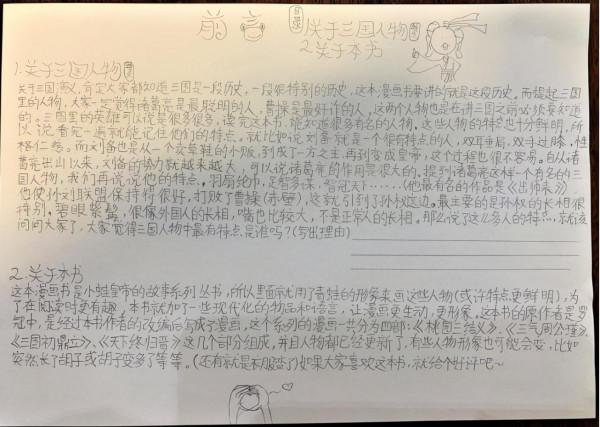 前言
目录
1.关于三国人物
2.关于本书
1.关于三国人物
关于三国演义,肯定大家都知道三国是一段历史,一段很特别的历史,这本漫画书要讲的就是这段历史。而提起三国
里的人物,大家一定觉得诸葛亮是最聪明的人,曹操是最奸诈的人,这两个人物也是在讲三国之前必须要知道
的。三国里的英雄可以说是很多很多,读完这本书,能知道很多有名的人物。这些人物的特点也十分鲜明,所
以说看完一遍就能记住他们的特点。就比如说刘备就是一个很有特点的人,双耳垂肩,双手过膝,性
格仁慈。而刘备也是从一个卖草鞋的小贩,到成了一方之主,再到变成皇帝,这个过程也很不容易。自从诸
葛亮出山以来,刘备的势力就越来越大,可以说诸葛亮的作用是很大的。提到诸葛亮这样一个有名的三
国人物,我们再说说他的特点。羽扇纶巾,足智多谋,智冠天下……(他最有名的作品是《出师表》)
他使孙刘联盟保持得很好,打败了曹操(赤壁),这就引到了孙权这边。最主要的是孙权的长相很
特别。碧眼紫髯,很像外国人的长相,嘴也比较大,不是正常人的长相。那么说了这么多人的特点,就该
问问大家了,大家觉得三国人物中最有特点是谁吗?(写出理由)
2.关于本书
这本漫画书是小蛙皇帝的故事系列丛书,所以里面就用了青蛙的形象来画这些人物(或许特点更鲜明),为
了在阅读时更有趣,本书就加了一些现代化的物品和语言,让漫画更生动,更形象,这本书的原作者是罗
冠中,是经过本书作者的改编后写成了漫画,这个系列的漫画一共分为四部:《桃园三结义》、《三气周公瑾》、
《三国初鼎立》、《天下终归晋》这几个部分组成,并且人物都已经更新了,有些人物形象也可能会变,比如
突然长了胡子或胡子变多了等等。(还有就是不服老了)如果大家喜欢这本书,就给个好评吧~